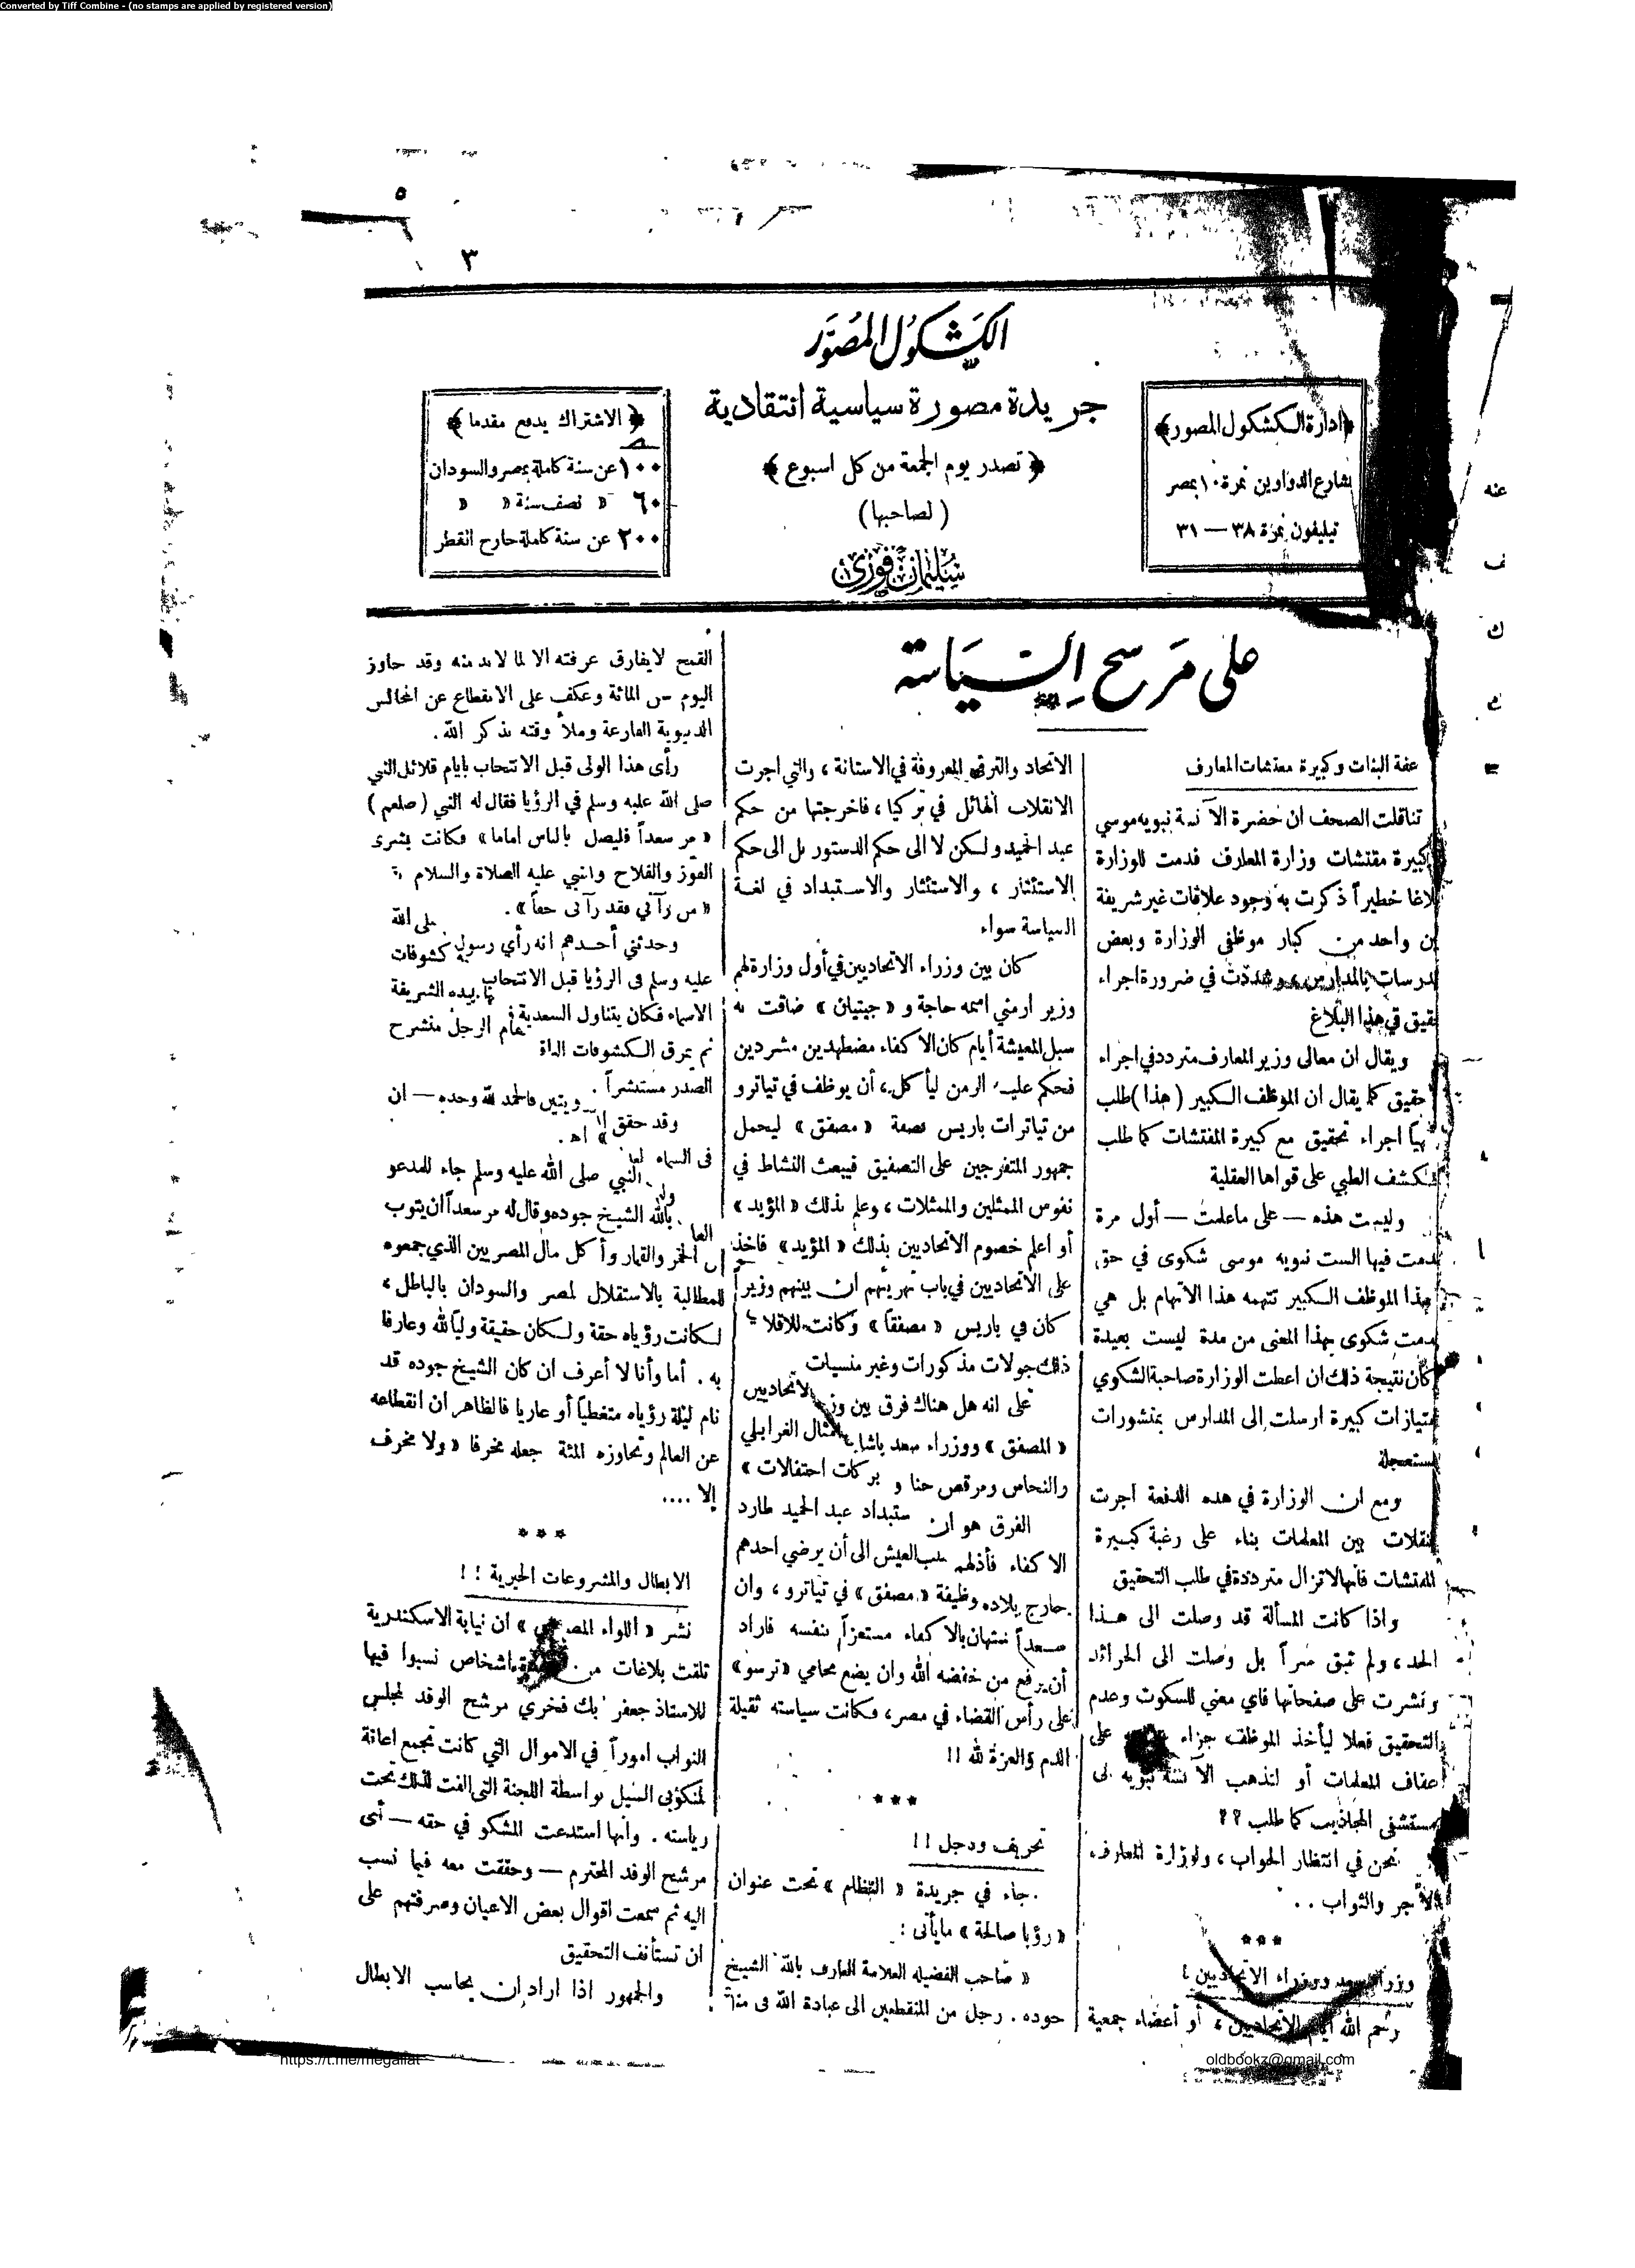 Converted by Tiff Combine - (no stamps are applied by registered version)
٥
٣
الكشكول المصور
جريدة مصورة سياسية انتقادية
﴿ تصدر يوم الجمعة من كل اسبوع ﴾
(لصاحبها)
سليمان فوزي
﴿ادارة الكشكول المصور﴾
بشارع الدواوين نمرة ١٠ بمصر
تيليفون نمرة ٣٨ — ٣١
﴿ الاشتراك يدفع مقدما ﴾
١٠٠ عن سنة كاملة بمصر والسودان
٦٠ « نصف سنة « «
٢٠٠ عن سنة كاملة خارج القطر
على مرسح السياسة
عفة البنات وكبيرة مفتشات المعارف
تناقلت الصحف ان حضرة الآنسة نبويه موسي
كبيرة مفتشات وزارة المعارف قدمت للوزارة
بلاغا خطيراً ذكرت به وجود علاقات غير شريفة
بين واحد من كبار موظفي الوزارة وبعض
مدرسات بالمدارس، وشددت في ضرورة اجراء
تحقيق في هذا البلاغ
ويقال ان معالى وزير المعارف متردد في اجراء
تحقيق كما يقال ان الموظف الكبير (هذا) طلب
اجراء تحقيق مع كبيرة المفتشات كما طلب
الكشف الطبي على قواها العقلية
وليست هذه — على ماعلمت — أول مرة
قدمت فيها الست نبويه موسى شكوى في حق
هذا الموظف الكبير تتهمه هذا الاتهام بل هي
قدمت شكوى بهذا المعنى من مدة ليست بعيدة
كان نتيجة ذلك ان اعطت الوزارة صاحبة الشكوي
امتيازات كبيرة ارسلت إلى المدارس بمنشورات
مستعجلة
ومع ان الوزارة في هذه الدفعة اجرت
تنقلات بين المعلمات بناء على رغبة كبيرة
المفتشات فانها لاتزال مترددة في طلب التحقيق
واذا كانت المسألة قد وصلت الى هذا
الحد، ولم تبق سراً بل وصلت الى الجرائد
ونشرت على صفحاتها فاي معني للسكوت وعدم
التحقيق فعلا ليأخذ الموظف جزاء على
عفاف المعلمات أو لتذهب الآنسة نبويه لى
مستشفى المجاذيب كما طلب ؟؟
نحن في انتظار الجواب، ولوزارة المعارف
الأجر والثواب . .
***
وزراء سعد ووزراء الاتحاديين !
رحم الله أيام الاتحاديين، أو أعضاء جمعية
الاتحاد والترقي المعروفة في الاستانة، والتي اجرت
الانقلاب الهائل في تركيا، فاخرجتها من حكم
عبد الحميد ولكن لا الى حكم الدستور بل الى حكم
الاستئثار، والاستئثار والاستبداد في لغة
السياسة سواء
كان بين وزراء الاتحاديين في أول وزارة لهم
وزير ارمني اسمه حاجة و « جيتيان » ضاقت به
سبل المعيشة أيام كان الاكفاء مضطهدين مشردين
فحكم عليه الزمن ليأكل، أن يوظف في تياترو
من تياترات باريس بصفة « مصفق » ليحمل
جمهور المتفرجين على التصفيق فيبعث النشاط في
نفوس الممثلين والممثلات، وعلم بذلك « المؤيد »
أو اعلم خصوم الاتحاديين بذلك « المؤيد » فاخذ
على الاتحاديين في باب تهريتهم ان بينهم وزيراً
كان في باريس « مصفقاً » وكانت للاقلام
ذلك جولات مذكورات وغير منسيات
على انه هل هناك فرق بين وزير الاتحاديين
« المصفق » ووزراء سعد باشا امثال الغرابلي
والنحاس ومرقص حنا و بركات احتفالات »
الفرق هو ان ستبداد عبد الحميد طارد
الاكفاء فأذلهم طلب العيش الى أن يرضي احدهم
خارج بلاده وظيفة « مصفق » في تياترو، وان
سعداً ستهان بالاكفاء مستعزاً بنفسه فاراد
أن يرفع من خفضه الله وان يضع محامي « ترسو »
على رأس القضاء في مصر، فكانت سياسته ثقيلة
الدم والعزة لله !!
***
تخريف ودجل !!
جاء في جريدة « النظام » تحت عنوان
« رؤيا صالحة » مايأتى :
« صاحب الفضيله العلامة العارف بالله الشيخ
جوده . رجل من المنقطعين الى عبادة الله فى منيا
القمح لا يفارق غرفته الا لما لابد منه وقد جاوز
اليوم سن المائة وعكف على الانقطاع عن المجالس
الدنيوية الفارغة وملأ وقته بذكر الله .
رأى هذا الولى قبل الانتخاب بايام قلائل النبي
صلى الله عليه وسلم في الرؤيا فقال له النبي (صلعم)
« مر سعداً فليصل بالناس اماما » فكانت بشرى
الفوز والفلاح والنبي عليه الصلاة والسلام
« من رآني فقد رآنى حقاً » .
وحدثني أحدهم انه رأي رسول صلى الله
عليه وسلم فى الرؤيا قبل الانتخاب كشوفات
الاسماء فكان يتناول السعدية بيده الشريفة
ثم يمزق الكشوفات فقام الرجل منشرح
الصدر مستبشراً .
وقد حقق ويتين فالحمد لله وحده — ان
فى السماء » اهـ .
النبي صلى الله عليه وسلم جاء للمدعو
بالله الشيخ جوده وقال له مر سعداً ان يتوب
الخمر والقمار وأكل مال المصريين الذي جمعوه
للمطالبة بالاستقلال لمصر والسودان بالباطل،
لكانت رؤياه حقة ولكان حقيقة ولياً لله وعارفا
به . أما وأنا لا أعرف ان كان الشيخ جوده قد
نام ليلة رؤياه متغطياً أو عاريا فالظاهر ان انقطاعه
عن العالم وتجاوزه المئة جعله مخرفا « ولا مخرف
إلا ....
***
الابطال والمشروعات الخيرية !!
نشر « اللواء المصري » ان نيابة الاسكندرية
تلقت بلاغات من اشخاص نسبوا فيها
للاستاذ جعفر بك فخري مرشح الوفد لمجلس
النواب اموراً في الاموال التي كانت تجمع اعانة
لمنكوبى السيل بواسطة اللجنة التى الفت لذلك تحت
رياسته . وانها استدعت المشكو في حقه — أى
مرشح الوفد المحترم — وحققت معه فيما نسب
اليه ثم سمعت اقوال بعض الاعيان وصرفتهم على
ان تستأنف التحقيق
والجمهور اذا اراد ان يحاسب الابطال
https://t.me/megallat
oldbookz@gmail.com